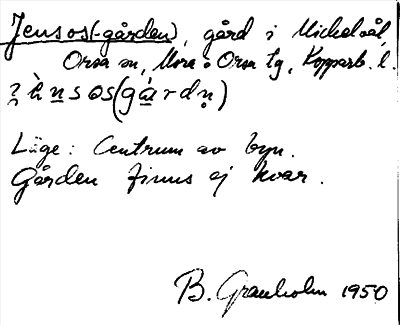 Jensos(-gården), gård i Mickelvål,
Orsa sn, Mora o Orsa tg, Kopparb. l.
Läge: Centrum av byn.
Gården finns ej kvar.
B. Granholm 1950